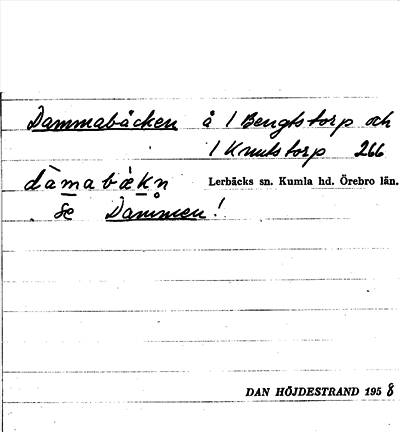 Dammabäcken å 1 Bengtstorp och
1 Knutstorp 266
dàmabæ̀kn̥ Lerbäcks sn. Kumla hd. Örebro län.
Se Dammen!
DAN HÖJDESTRAND 1958